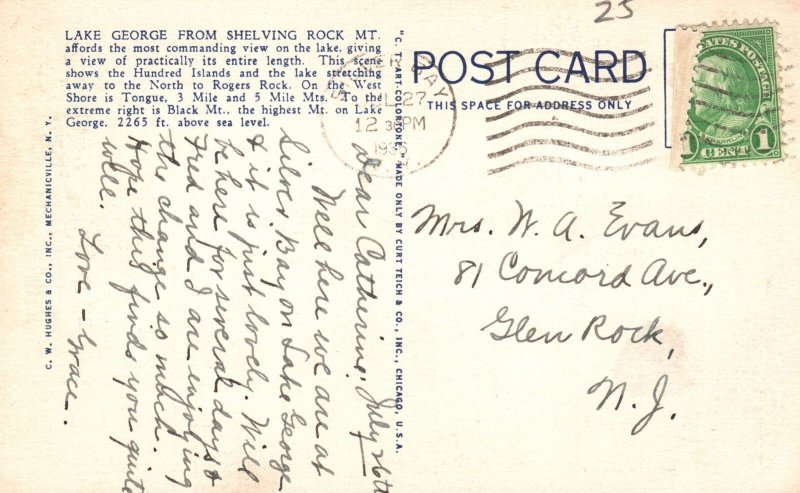 25
LAKE GEORGE FROM SHELVING ROCK MT.
affords the most commanding view on the lake, giving
a view of practically its entire length. This scene
shows the Hundred Islands and the lake stretching
away to the North to Rogers Rock. On the West
Shore is Tongue, 3 Mile and 5 Mile Mts. To the
extreme right is Black Mt., the highest Mt. on Lake
George, 2265 ft. above sea level.
C. W. HUGHES & CO., INC., MECHANICVILLE, N. Y.
"C. T. ART-COLORTONE," MADE ONLY BY CURT TEICH & CO., INC., CHICAGO, U.S.A.
POST CARD
THIS SPACE FOR ADDRESS ONLY
BAY
27
12 30 PM
UNITED STATES POSTAGE
FRANKLIN
1 CENT 1
July 26th
Dear Catherine:
Well here we are at
Silver Bay on Lake George
& it is just lovely. Will
be here for several days &
Fred and I are enjoying
the change so much.
Hope this finds you quite
well.
Love - Grace.
Mrs. W. A. Evans,
81 Concord Ave.,
Glen Rock,
N. J.